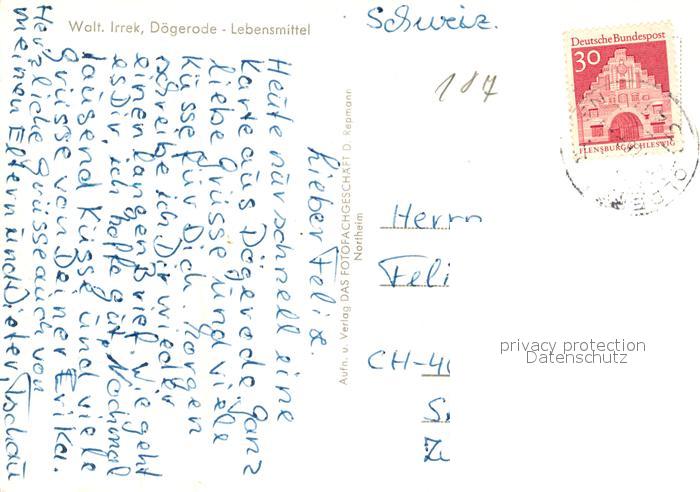 Walt. Irrek, Dögerode - Lebensmittel
Lieber Felix.
Heute nur schnell eine
Karte aus Dögerode. Ganz
liebe Grüsse und viele
Küsse für Dich. Morgen
schreibe ich Dir wieder
einen langen Brief. Wie geht
es Dir, ich hoffe gut. Nochmal
tausend Küsse und viele
Grüsse von Deiner Erika.
Herzliche Grüsse auch von
meinen Eltern und Dieter. Tschau
Aufn. u. Verlag DAS FOTOFACHGESCHÄFT D. Repmann
Northeim
Schweiz.
187
Deutsche Bundespost
30
FLENSBURG/SCHLESWIG
Herrn
Feli
CH-40
privacy protection
Datenschutz